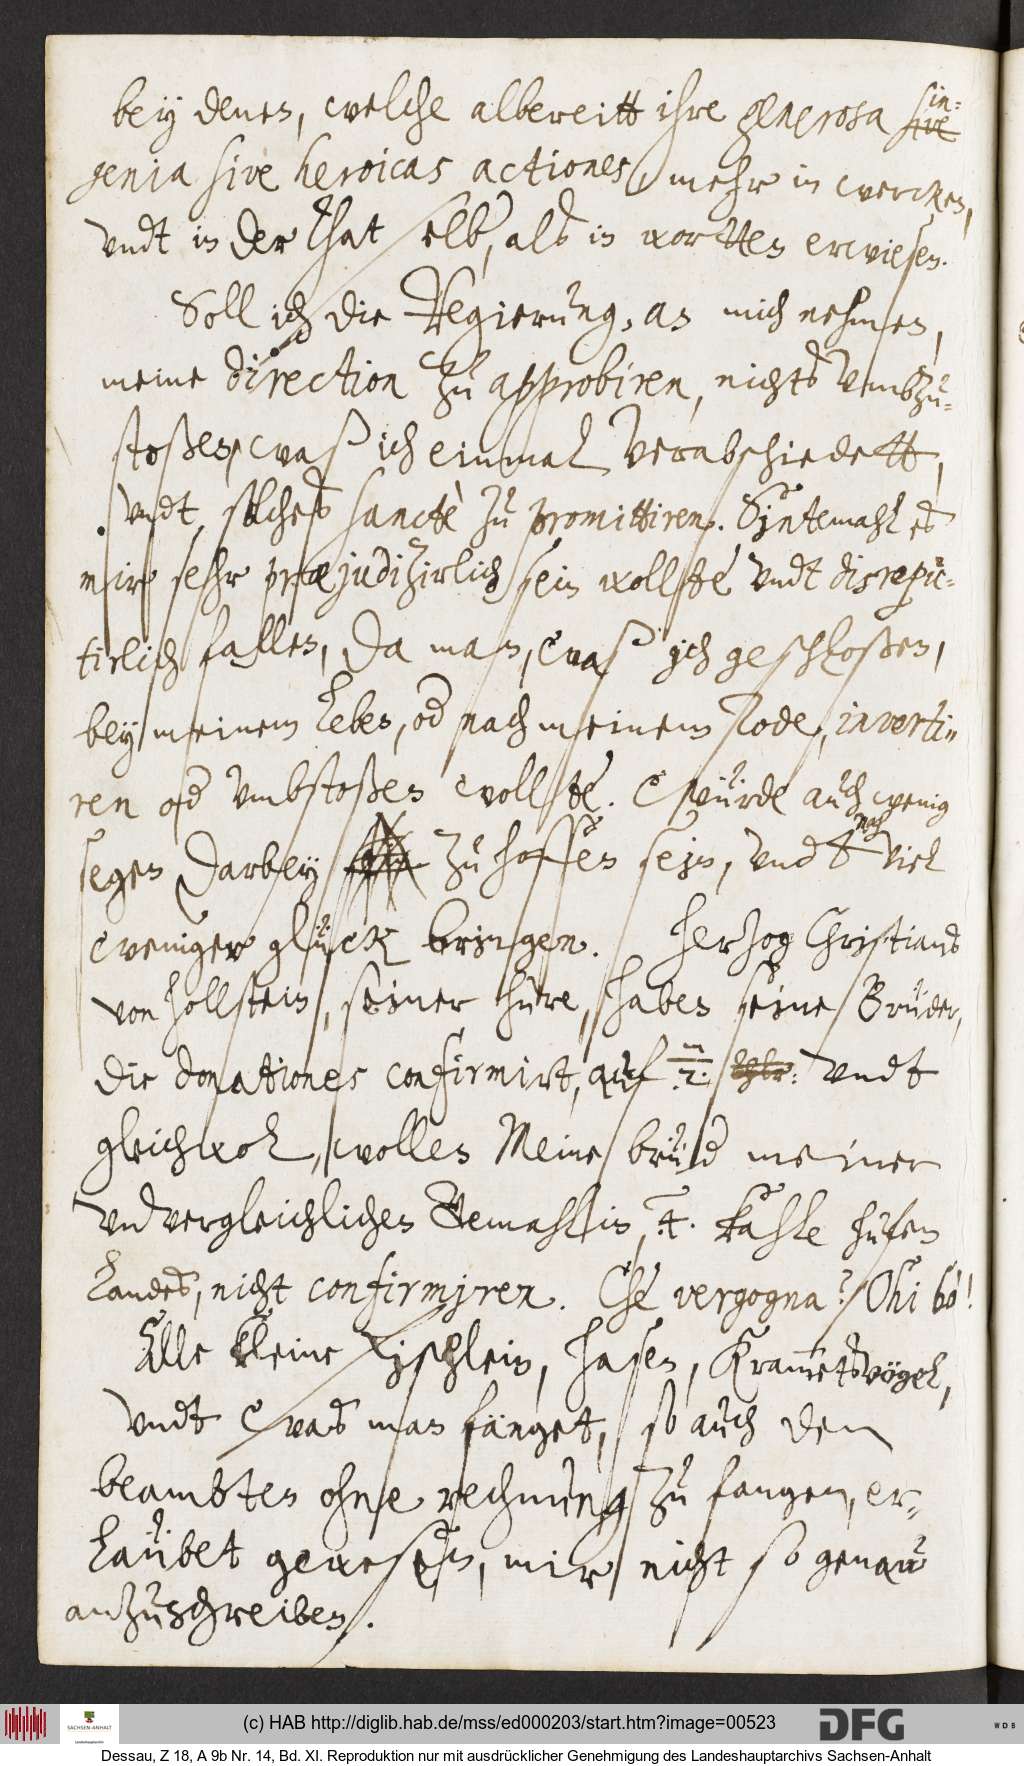 bey denen, welche albereitt ihre generosa sive in-
genia sive heroicas actiones, mehr in wercken,
undt in der that selb, als in wortten erwiesen.
Soll ich die Regierung, an mich nehmen,
meine direction zu approbiren, nichts umbzu-
stoßen, waß ich einmal verabschiedett,
undt, solches sanctè zu promittiren. Sintemahl es
mir sehr præjudizirlich sein wollte undt disrepu-
tirlich fallen, da man, waß ich geschloßen,
bey meinem Leben, od nach meinem Tode, inverti-
ren od umbstoßen wollte. Würde auch wenig
segen darbey zu hoffen sein, undt noch viel
weniger glück bringen. Herzog Christians
von Hollstein, seiner hure, haben seine Brüder,
die donationes confirmirt, auf undt
gleichwol, wollen Meine brüd meiner
unvergleichlichen Gemahlin, 4. kahle hufen
Landes, nicht confirmiren. Che vergogna? Ohi bó!
Alle kleine Fischlein, hasen, Krametsvögel,
undt was man fänget, so auch den
beambten ohne rechnung zu fangen, er-
laubet gewesen, mir nicht so genau
anzuschreiben.
(c) HAB http://diglib.hab.de/mss/ed000203/start.htm?image=00523
SACHSEN-ANHALT
Landeshauptarchiv
DFG
WDB
Dessau, Z 18, A 9b Nr. 14, Bd. XI. Reproduktion nur mit ausdrücklicher Genehmigung des Landeshauptarchivs Sachsen-Anhalt